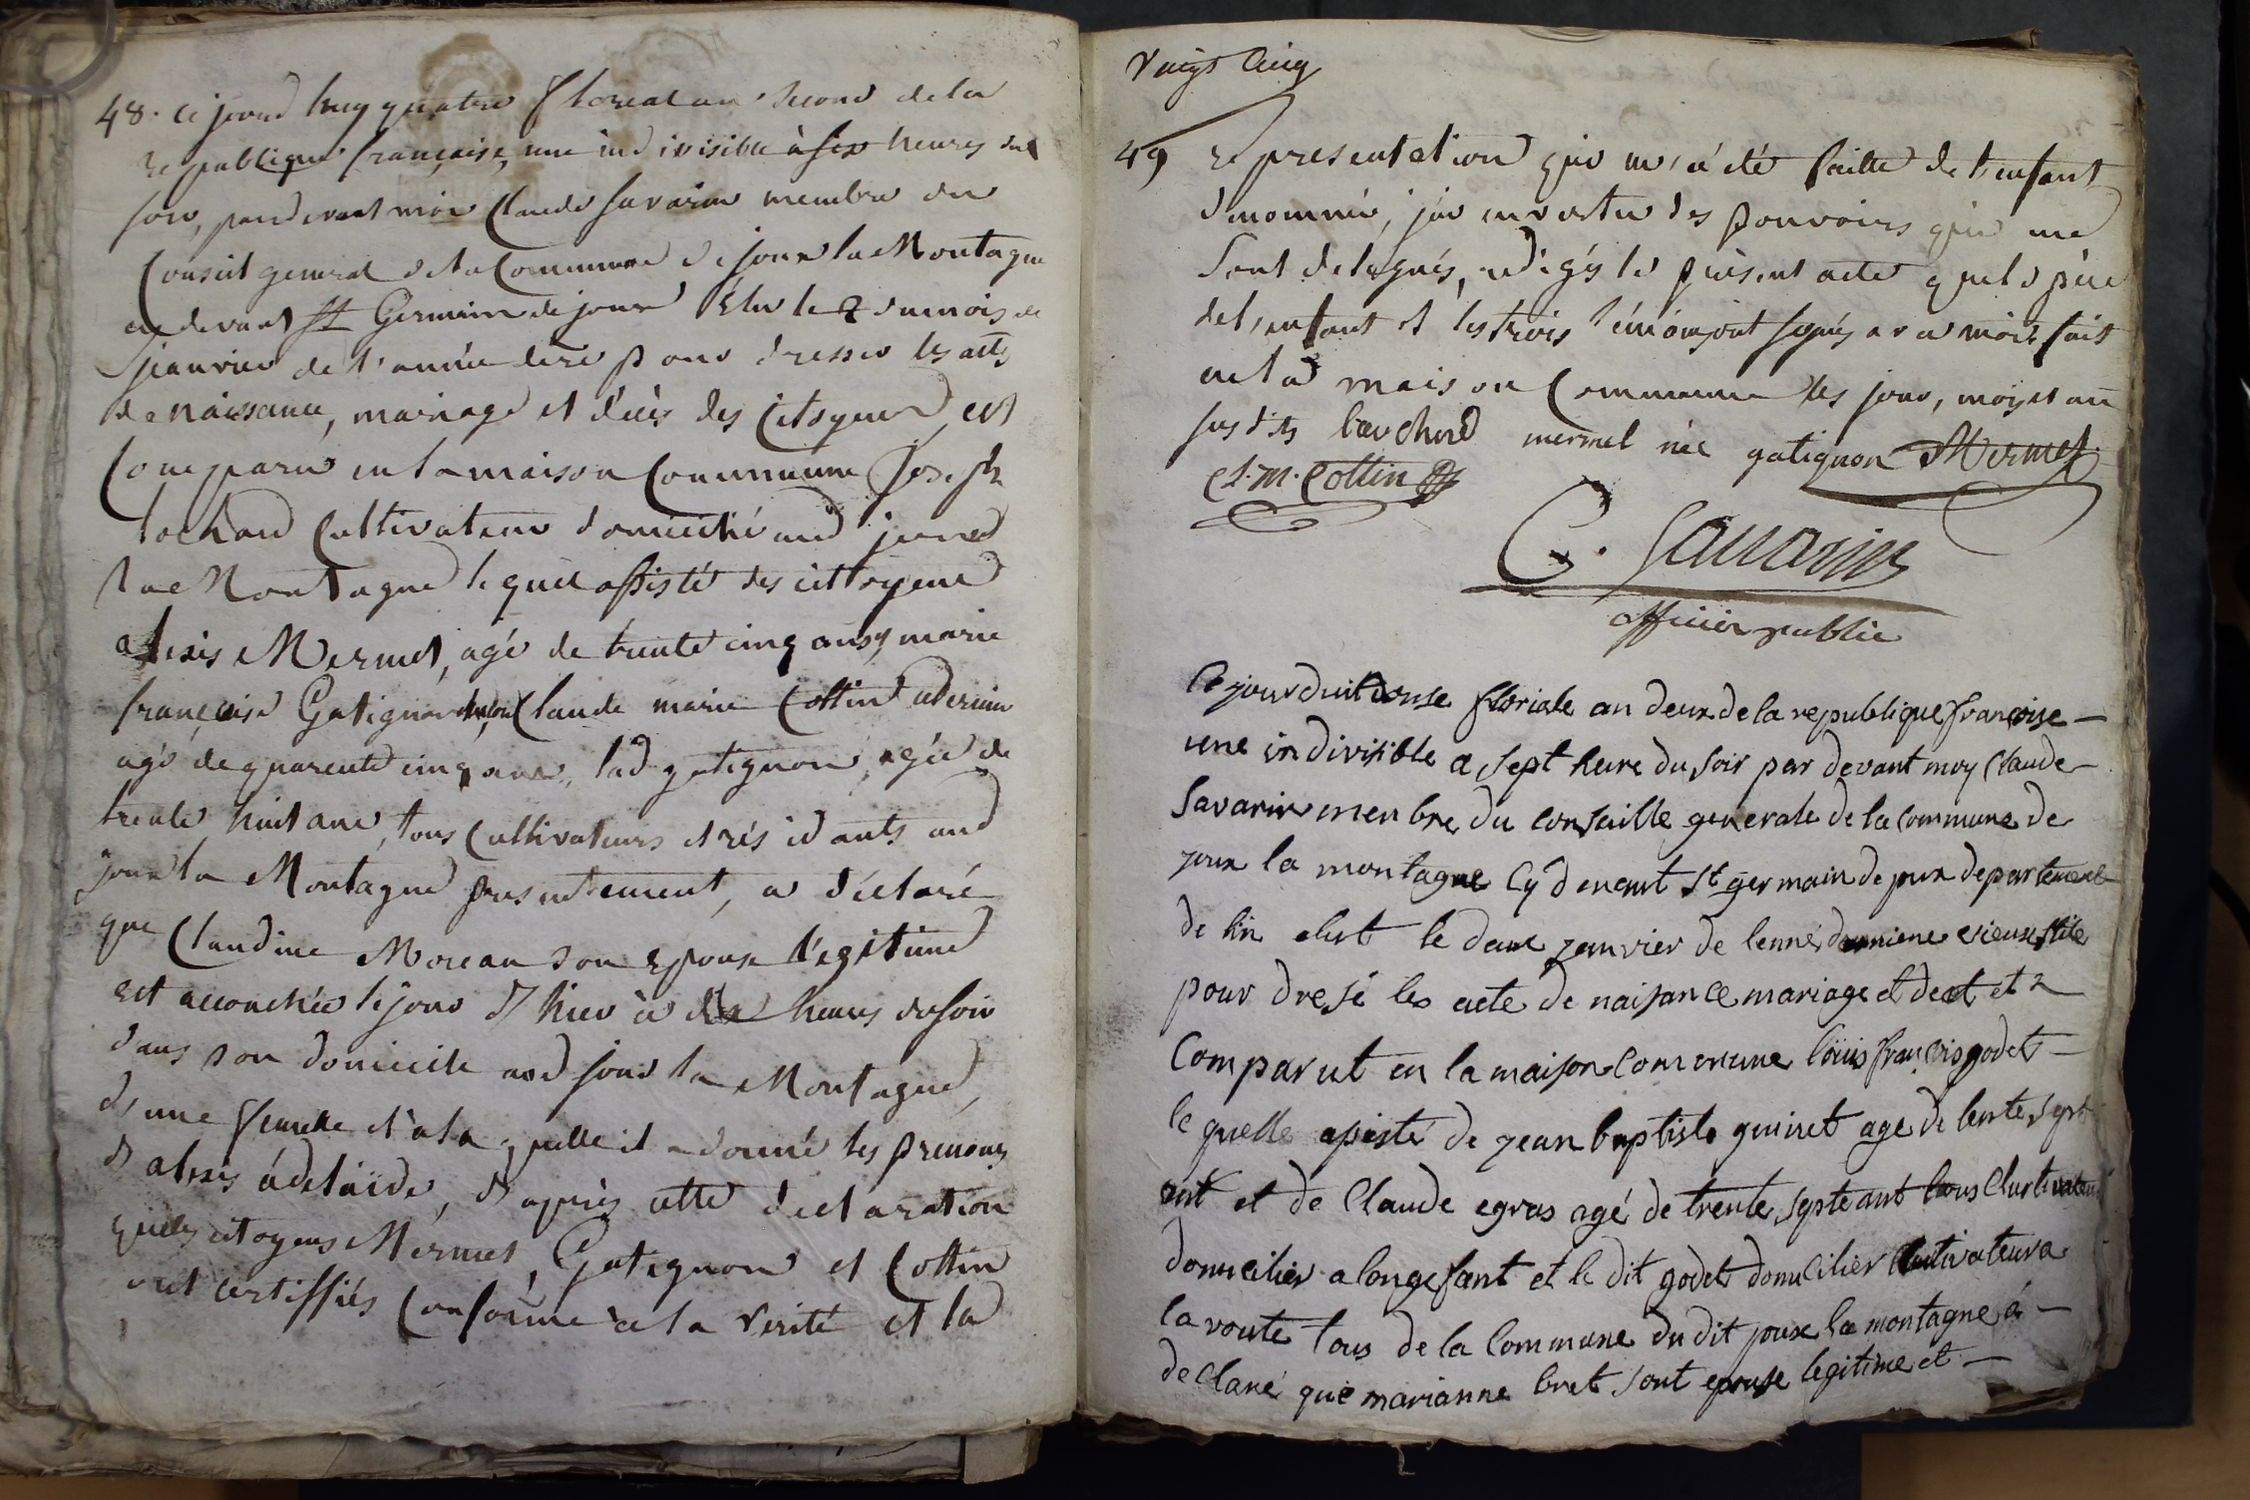 48. Ce jourd huy quatre floreal an second de la
republique française, une indivisible à six heures du
soir, par devant moi Claude Savarin membre du
Conseil general de la Commune de joux la Montagne
cy devant St Germain de joux Elu le 2 du mois de
janvier de l'année dere pour dresser les acts
de naissance, mariage et décès des Citoyens, est
Comparu en la maison Commune Joseph
bochard Cultivateur domicilié aud joux
la Montagne lequel assisté des cittoyens
alexis Mermet, agé de trente cinq ans, marie
françoise Gatignon Claude marie Cottin
agé de quarente cinq ans, lad gatignon, agée de
trente huit ans, tous Cultivateurs et résidants aud
joux la Montagne presentement, a déclaré
que Claudine Moreau son Epouse légitime
est accouchée le jour d'hier à dix heures du soir
dans son domicile aud joux la Montagne,
d'une femelle et à la quelle il a donné les prenoms
d'alexis adélaïde, d'après cette declaration
que les citoyens Mermet, Gatignon et Cottin
ont certiffiés Conforme à la Verité et la
Vingt Cinq
49 représentation qui m'a été faitte de l'enfant
denommé, j'ai en vertu des pouvoirs qui me
sont delegués, redigés le présent acte que le père
de l'enfant et les trois témoins ont signés avec moi fait
en la maison Commune les jour, mois et an
susdits bauchard mermet née gatignon Mermet
cl. m. Cottin
C. Savarin
officier public
Ce jourduit donse floriale an deux de la republique françoise
une indivisible a sept heure du soir par devant moy Claude
Savarin menbre du consaille generale de la commune de
joux la montagne Cy devant St germain de joux departement
de lin elut le deux janvier de lenné derniere vieux stile
pour dresé les acte de naisance mariage et decet et
Comparut en la maison commune loüis françois godet
le quelle asisté de jean baptiste guinet age de trente sept
ant et de Claude egras agé de trente septe ant tous Cultivateur
domicilier a longefant et le dit godet domicilier Cultivateur a
la voute tous de la commune du dit joux la montagne á
declaré que marianne bret sont epouse legitime et